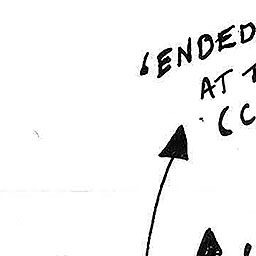 'ENDED
AT T
(C